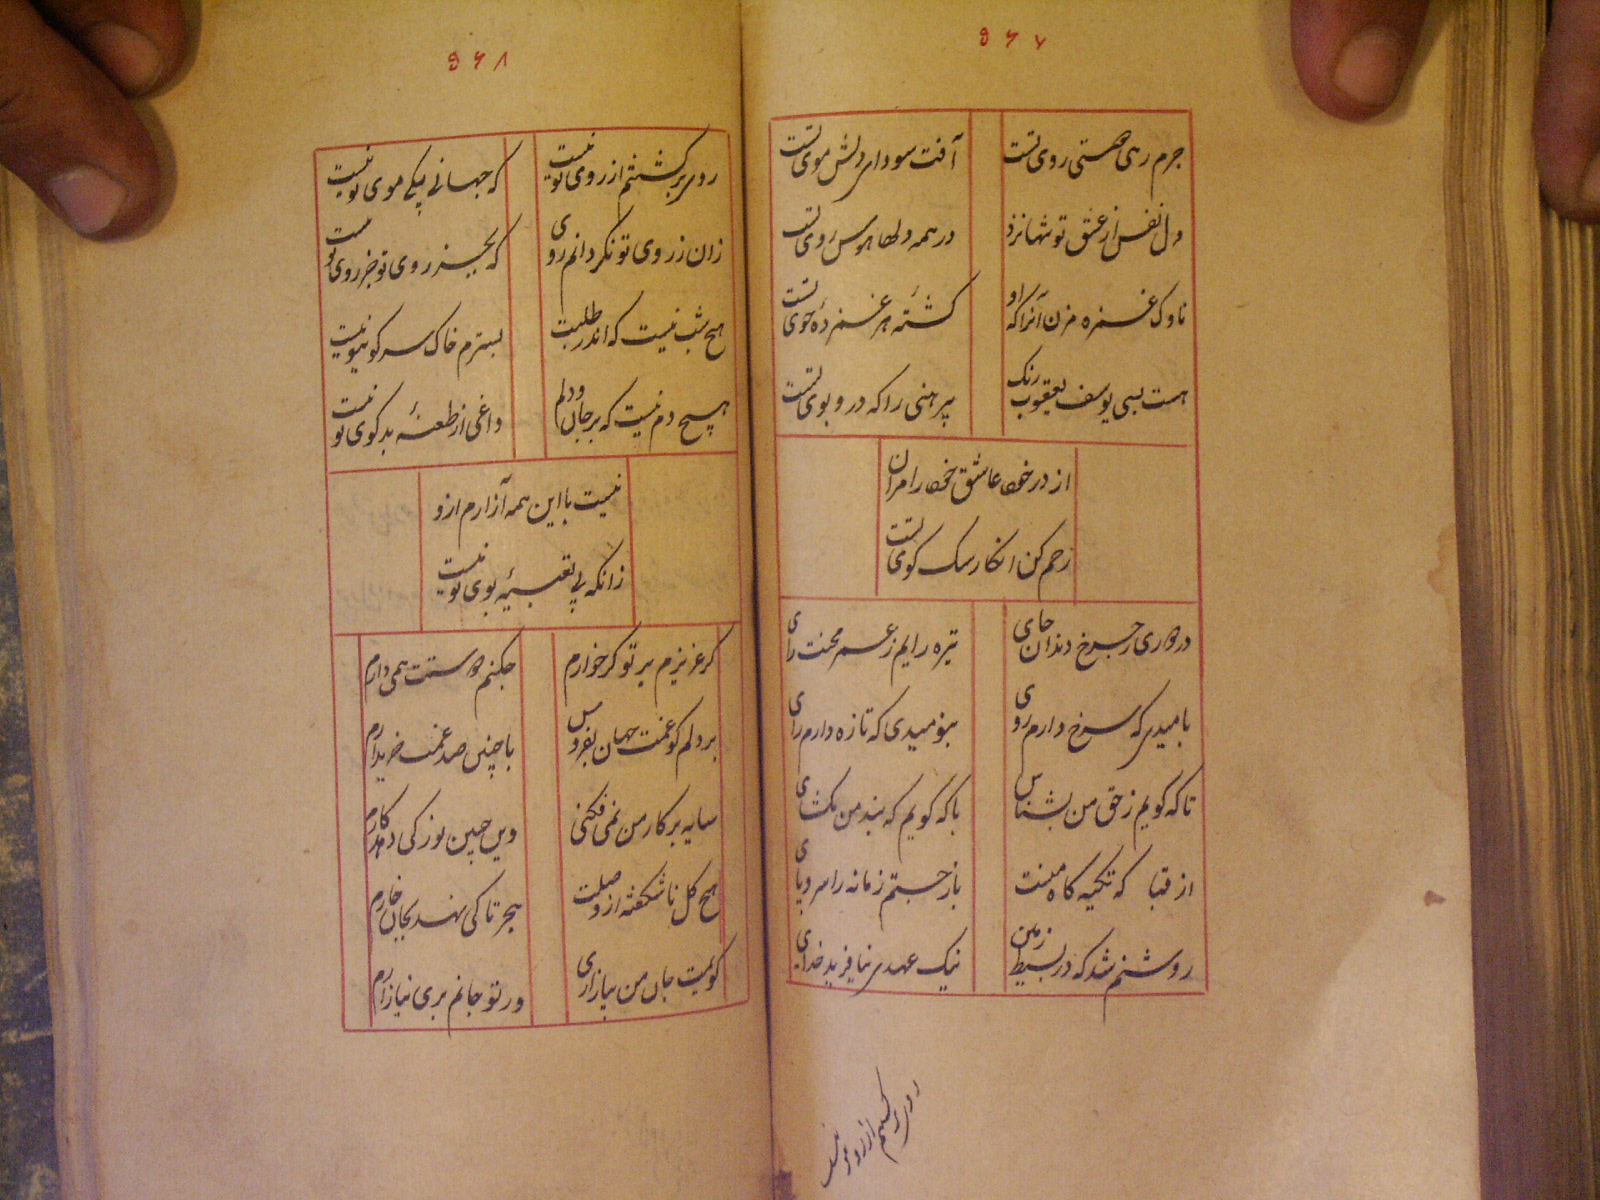 ۵۶۷
جرم رهی هستی روی تست
آفت سودای دلش موی تست
دل نفس از عشق تو تنها نزد
در همه دلها هوس روی تست
ناوک غمزه مزن آنرا که او
کشتهٔ هر غمزدهٔ خوی تست
هست بسی یوسف یعقوب رنگ
پیرهنی را که درو بوی تست
از در خود عاشق خود را مران
رحم کن انکار سک کوی تست
خواری چرخ دندان خای
تیره رایم ز عمر محنت زای
بامیدی که سرخ دارم روی
بنومیدی که تازه دارم رای
تا که گویم ز حق من بشناس
با که گویم که بند من بگشای
از قبا که تکیه کاه منست
باز جستم زمانه را سر و پای
روشنم شد که در بسیط زمین
نیک عهدی نیافرید خدای
روی برگشتم از روی تو نیست
۵۶۸
روی برگشتنم از روی تو نیست
که جهانی بیکی موی تو نیست
زان ز روی تو نگردانم روی
که بجز روی تو جز روی تو نیست
هیچ شب نیست که اندر طلبت
بسترم خاک سر کوی تو نیست
هیچ دم نیست که بر جان و دلم
داغی از طعنهٔ بد کوی تو نیست
نیست با این همه آزارم ازو
زانکه بی تعبیهٔ بوی تو نیست
کر عزیزم بر تو کر خوارم
چکنم دوستت همی دارم
بر دلم کو غمت جهان بفروش
با چنین صد غمت خریدارم
سایه بر کار من نمی فکنی
وین چنین نوز کی دهد کارم
هیچ کل ناشکفته از وصلت
هجر تا کی نهد بجان خارم
کویمت جان من بیازاری
ور تو جانم بری نیازارم